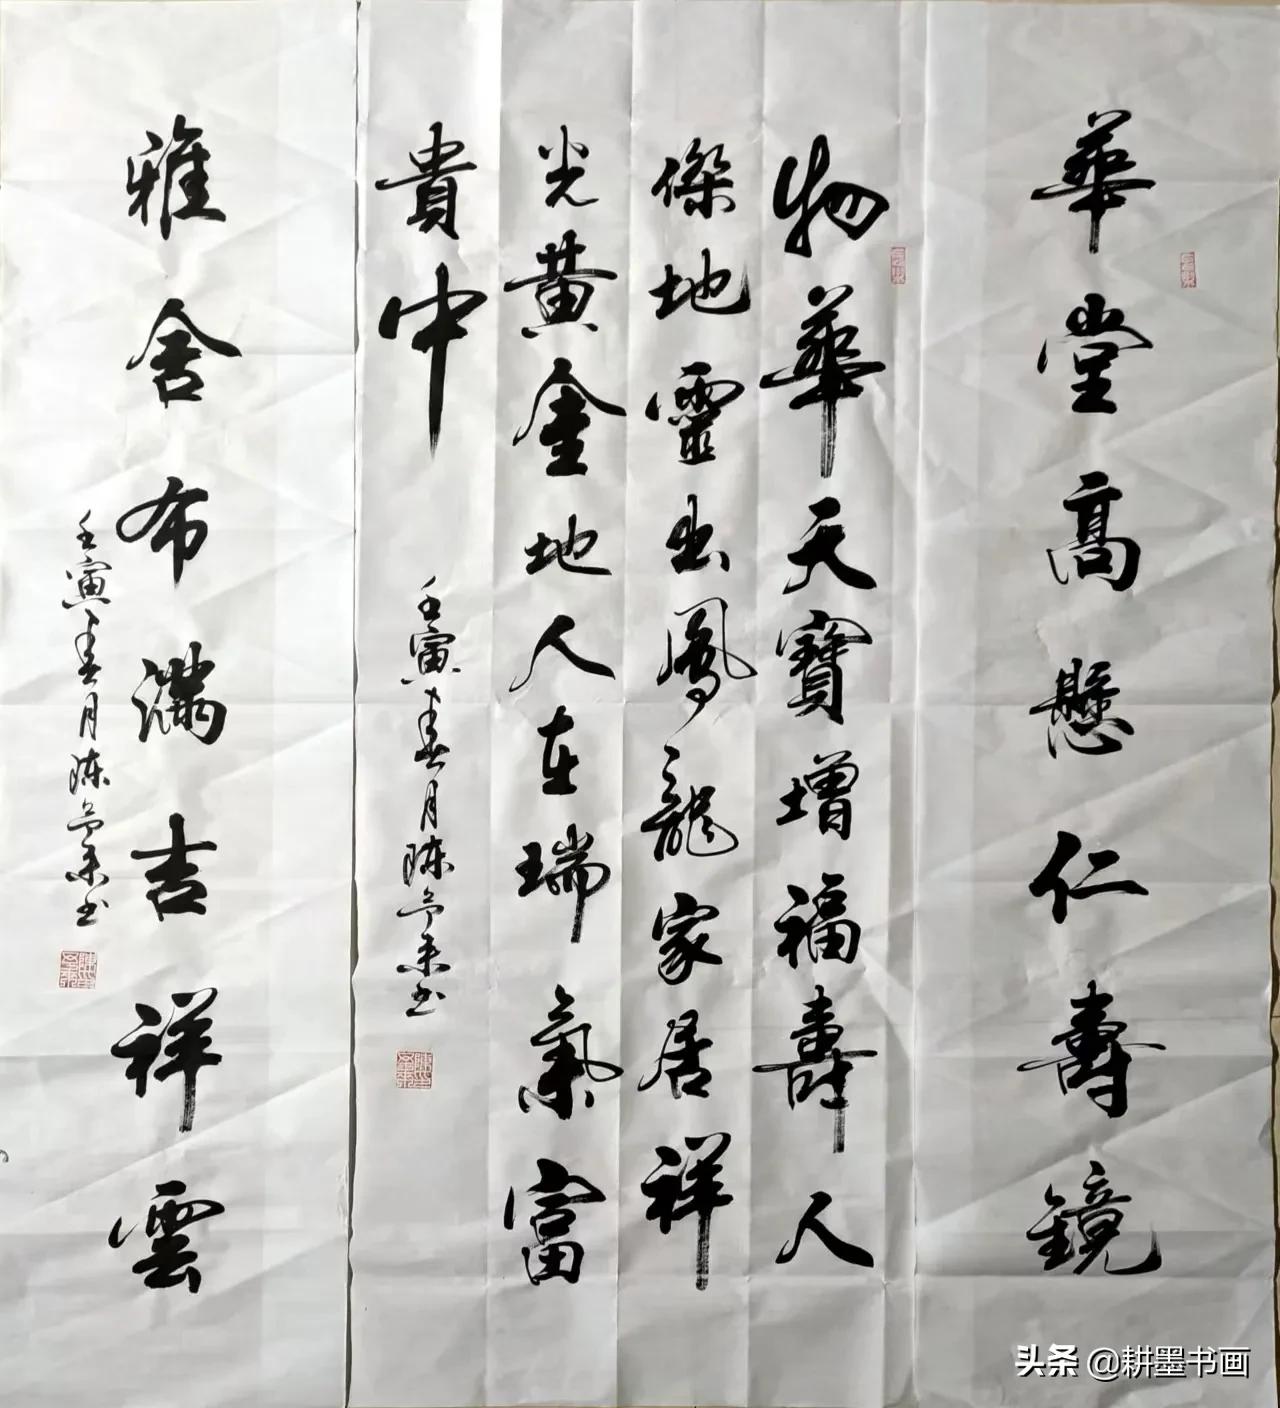 華堂高懸仁壽鏡
物華天寶增福壽人
傑地靈出鳳龍家居祥
光黃金地人在瑞氣富
貴中
壬寅春月陳
雅舍布滿吉祥雲
壬寅春月陳
头条 @耕墨书画